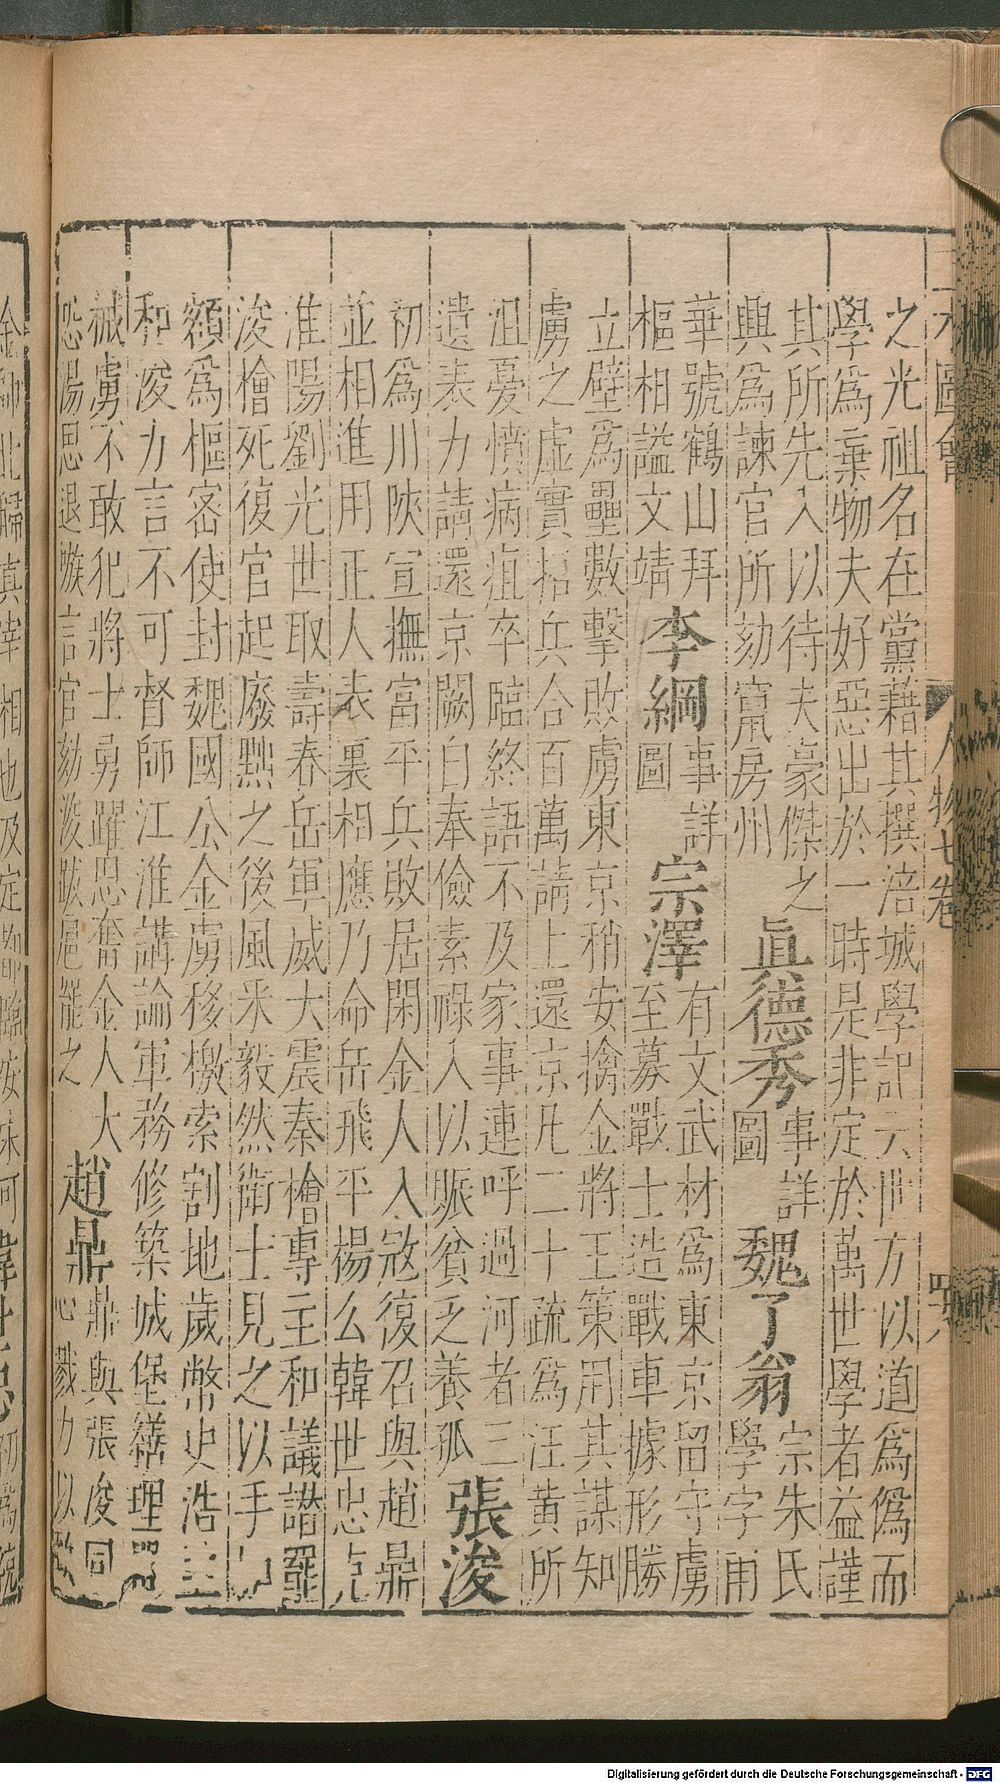 之光祖名在黨藉其撰涪城學記云世方以道爲僞而
學爲棄物夫好惡出於一時是非定於萬世學者益謹
其所先入以待夫豪傑之
興爲諫官所劾竄房州
眞德秀
事詳
圖
魏了翁
宗朱氏
學字甫
華號鶴山拜
樞相謚文靖
李綱
事詳
圖
宗澤
有文武材爲東京留守虜
至募戰士造戰車據形勝
立壁爲壘數擊敗虜東京稍安擒金將王策用其謀知
虜之虛實招兵合百萬請上還京凡二十疏爲汪黃所
沮憂憤病疽卒臨終語不及家事連呼過河者三
遺表力請還京闕自奉儉素祿入以賑貧乏養孤
張浚
初爲川陝宣撫富平兵敗居閑金人入寇復召與趙鼎
並相進用正人表裏相應乃命岳飛平楊么韓世忠克
淮陽劉光世取壽春岳軍威大震秦檜專主和議諧罷
浚檜死復官起廢黜之後風采毅然衛士見之以手加
額爲樞密使封魏國公金虜移檄索割地歲幣史浩主
和浚力言不可督師江淮講論軍務修築城堡繕理
械虜不敢犯將士勇躍思奮金人大
恐湯思退嗾言官劾浚跋扈罷之
趙鼎
鼎與張浚同
心戮力以
三才圖會
人物七卷
Digitalisierung gefördert durch die Deutsche Forschungsgemeinschaft - DFG